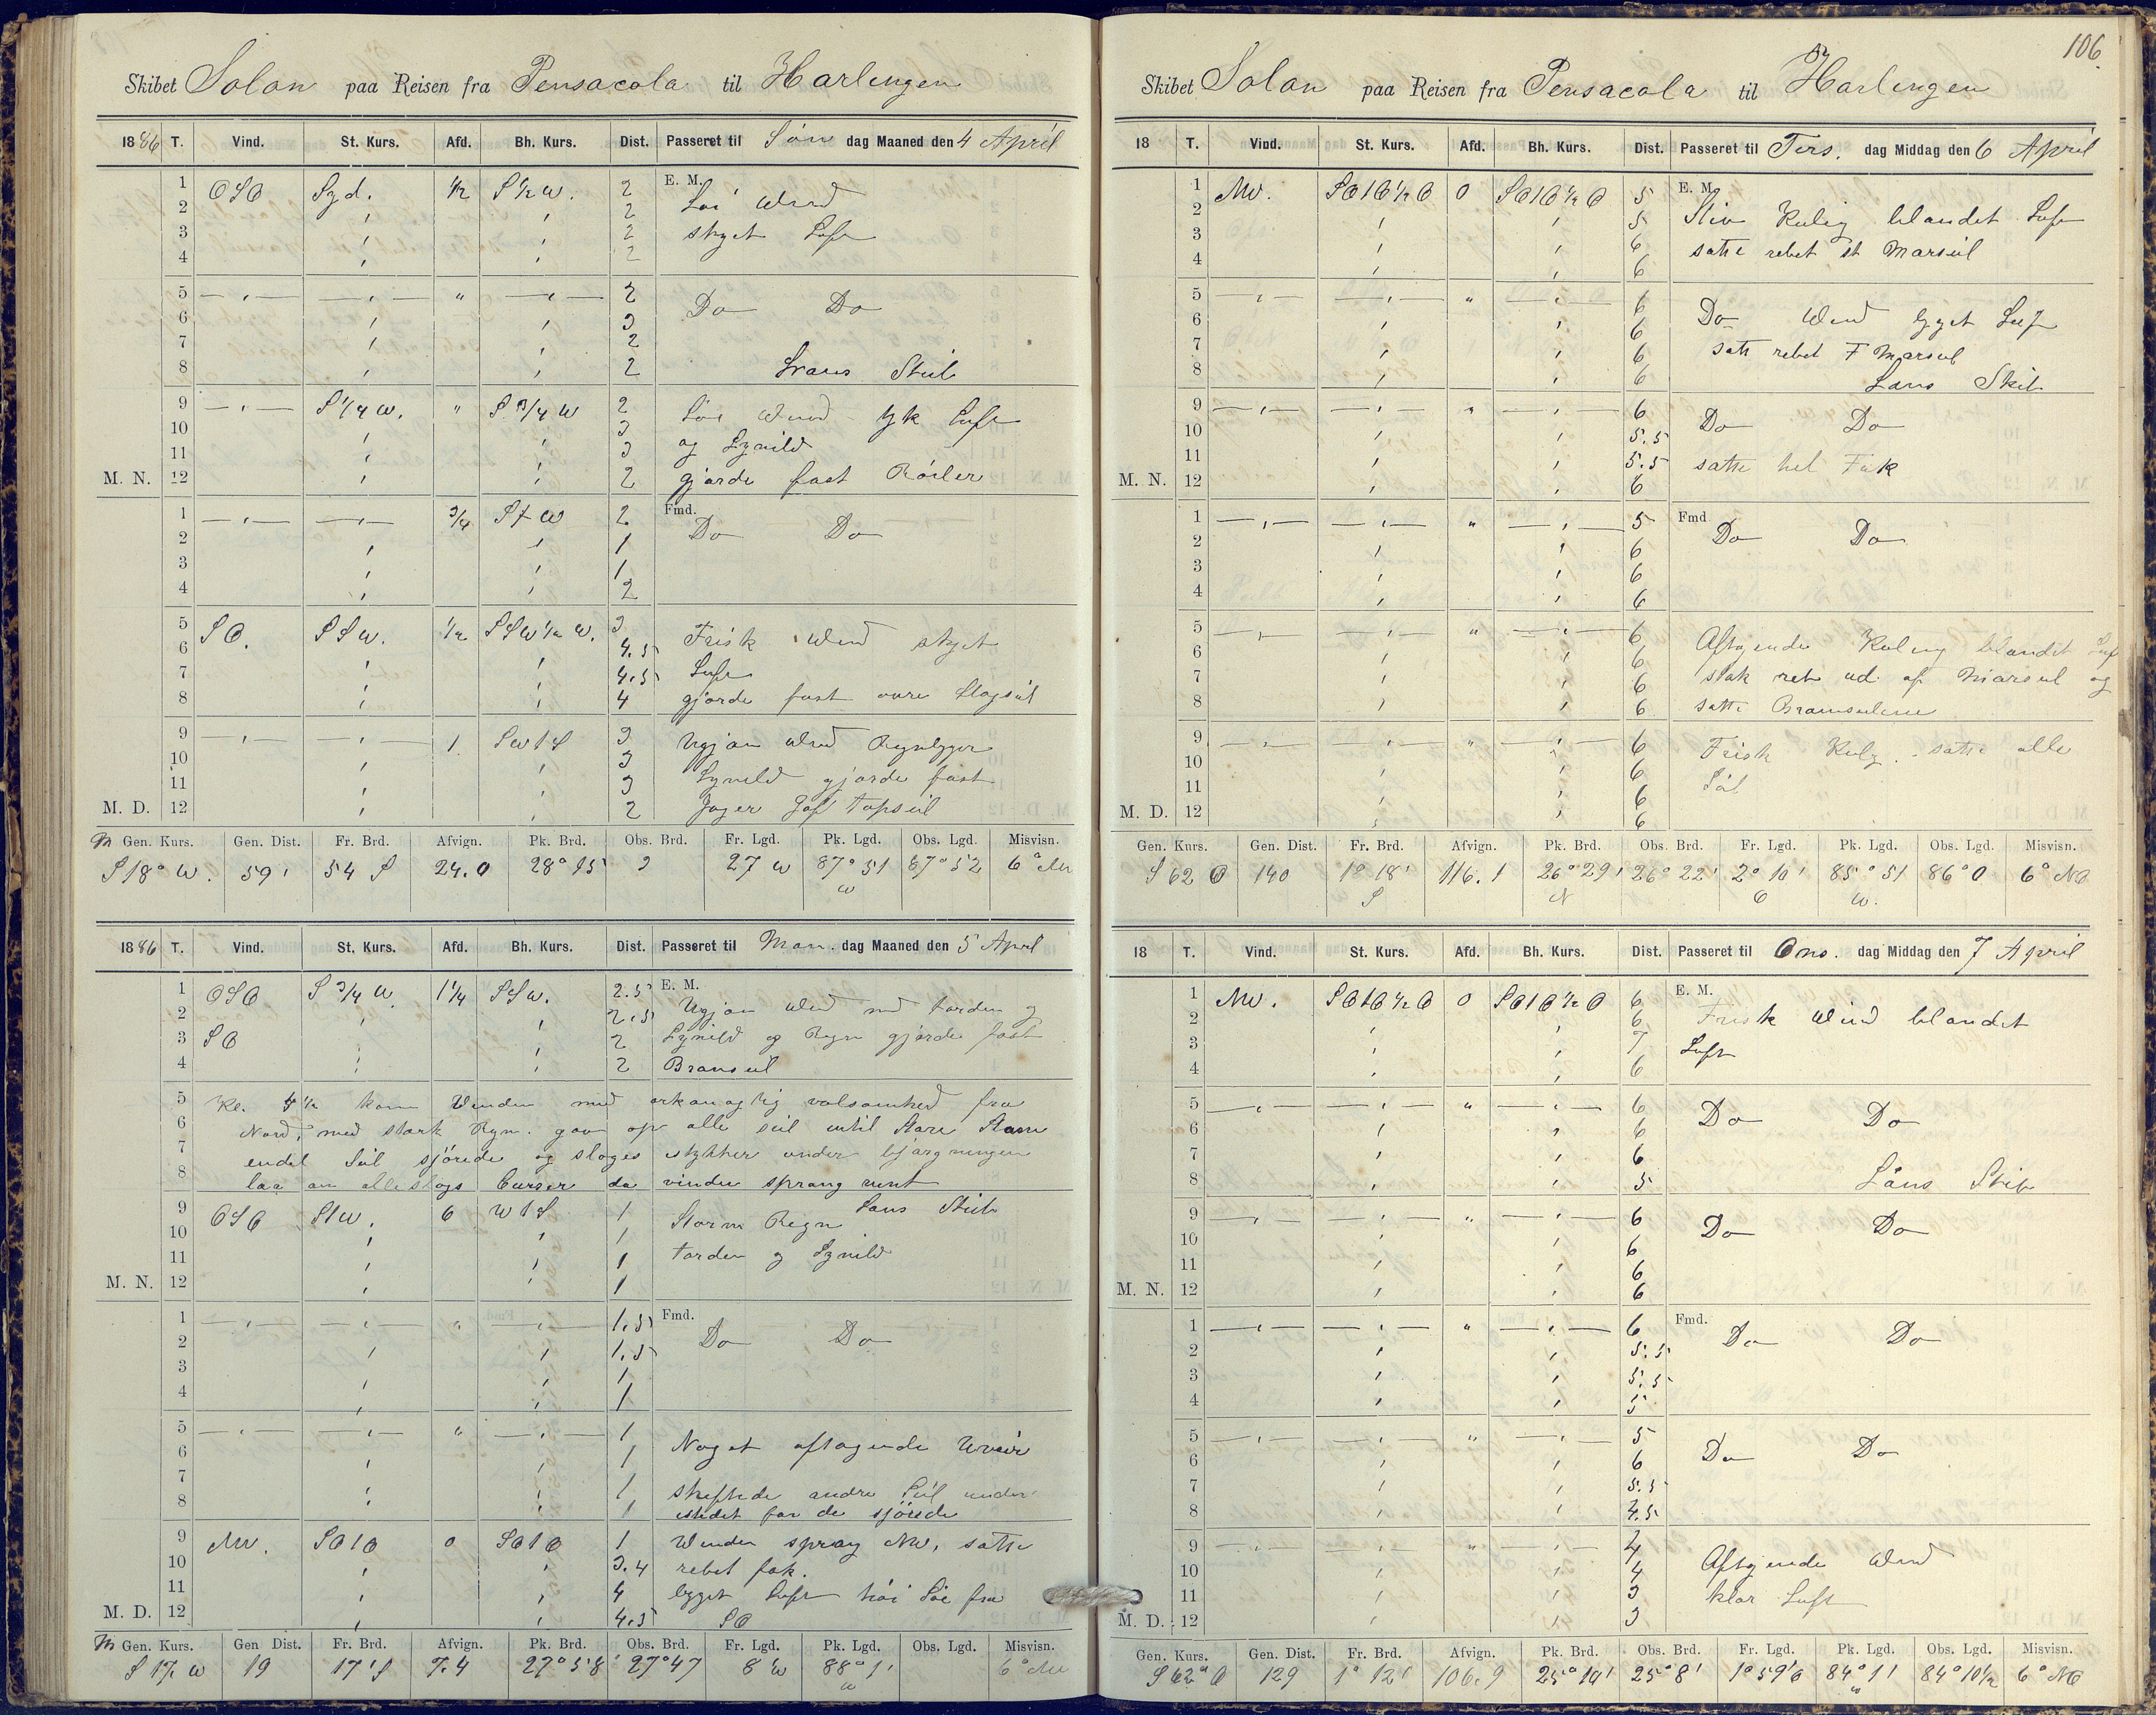 Skibet Solon paa Reisen fra Pensacola til Harlingen
1886 T. Vind. St. Kurs. Afd. Bh. Kurs. Dist. Passeret til Søn dag Maaned den 4 April
1 OSO Syd. 1/2 S 1/2 W. 2 E. M.
2 2 Löi Wind
3 2 skyet Luft
4 2
5 2 Do Do
6 3
7 2
8 2 Lrans Skib
9 S 1/4 W. " S 3/4 W 2 Löi Wind tyk Luft
10 3 og Lynild
11 3
M. N. 12 2 gjorde fast Röiler
1 3/4 S t W 2 Fmd. Do Do
2 1
3 1
4 2
5 SO. SSW. 1/2 SSW 1/2 W. 3
6 4.5 Frisk Wind skyet
7 4.5 Luft
8 4 gjorde fast övre Stagsiil
9 1 SW t S 3 Ugjøn Wind Regnbyger
10 3
11 3 Lynild gjorde fast
M. D. 12 2 Jager Gaf Topseil
M Gen. Kurs. Gen. Dist. Fr. Brd. Afvign. Pk. Brd. Obs. Brd. Fr. Lgd. Pk. Lgd. Obs. Lgd. Misvisn.
S 18° W. 59' 54 S 24.0 28° 15 27 W 87° 51 W 87° 52 6° NO
1886 T. Vind. St. Kurs. Afd. Bh. Kurs. Dist. Passeret til Man. dag Maaned den 5 April
1 OSO S 3/4 W. 1 1/4 SSW. 2.5 E. M.
2 2.5 Ugjøn Wind med torden og
3 SO 2 Lynild og Regn gjorde fast
4 2 Bramseil
5 Kl. 4 1/2 kom Vinden med orkanaglig volsomhed fra
6 Nord, med stærk Rgn. gav op alle seil intil Store Stam
7 endel Seil sjörede og sloges istykker under bjærgningen
8 laa an alleslags Curser da vinden sprang runt
Lans Skib
9 OSO StW. 6 W t S 1 Storm Regn
10 1
11 1 torden og Lynild
M. N. 12 1
1 1.5 Fmd.
2 1.5 Do Do
3 1
4 1
5 1
6 1 Noget aftagende Uveir
7 1 skiftede andre Seil under
8 1 istedet for de sjörede
9 NW. SOtO 0 SOtO 1 Winden sprang NW, satte
10 3.4 rebet fok.
11 4 bygget Luft höi Söe fra
M. D. 12 4.5 SO
M Gen. Kurs. Gen Dist. Fr. Brd. Afvign. Pk. Brd. Obs. Brd. Fr. Lgd. Pk. Lgd. Obs. Lgd. Misvisn.
S 17. W 19 17' S 7.4 27° 58' 27° 47 8' W 88° 1' W 6° NO
106.
Skibet Solon paa Reisen fra Pensacola til Harlingen
18 T. Vind. St. Kurs. Afd. Bh. Kurs. Dist. Passeret til Tirs. dag Middag den 6 April
1 NW. SOtO 1/2 O 0 SOtO 1/2 O 5 E. M.
2 5 Stiv Kulig blandet Luft
3 6 satte rebet st Marseil
4 6
5 6 Do Wind bygget Luft
6 6
7 6 satte rebet F Marseil
8 6 Lans Skib
9 6 Do Do
10 5.5
11 5.5 satte hel Fok
M. N. 12 6
1 5 Fmd Do Do
2 6
3 6
4 6
5 6 Aftagende Kuling blandet Luf
6 6
7 6 stak reb ud af Marseil og
8 6 satte Bramseilene
9 6 Frisk Kulg. satte alle
10 6
11 6 Seil
M. D. 12 6
Gen. Kurs. Gen. Dist. Fr. Brd. Afvign. Pk. Brd. Obs. Brd. Fr. Lgd. Pk. Lgd. Obs Lgd. Misvisn.
S 62 O 140 1° 18' S 116.1 26° 29' N 26° 22' 2° 10' O 85° 51 W. 86° 0 6° NO
18 T. Vind. St. Kurs. Afd. Bh. Kurs. Dist. Passeret til Ons. dag Middag den 7 April
1 NW. SOtO 1/2 O 0 SOtO 1/2 O 6 E. M.
2 6 Frisk Wind blandet
3 7 Luft
4 6
5 6 Do Do
6 6
7 6
8 5 Låns Skib
9 6 Do Do
10 6
11 6
M. N. 12 6
1 6 Fmd. Do Do
2 5.5
3 5.5
4 5
5 5 Do Do
6 6
7 5.5
8 4.5
9 4 Aftagende Wind
10 4
11 3 klar Luft
M. D. 12 3
Gen. Kurs. Gen. Dist. Fr. Brd. Afvign. Pk. Brd. Obs. Brd. Fr. Lgd. Pk. Lgd. Obs. Lgd. Misvisn.
S 62° O 129 1° 12' 106.9 25° 10' 25° 8' 1° 59' O 84° 1' W 84° 10 1/2 6° NO